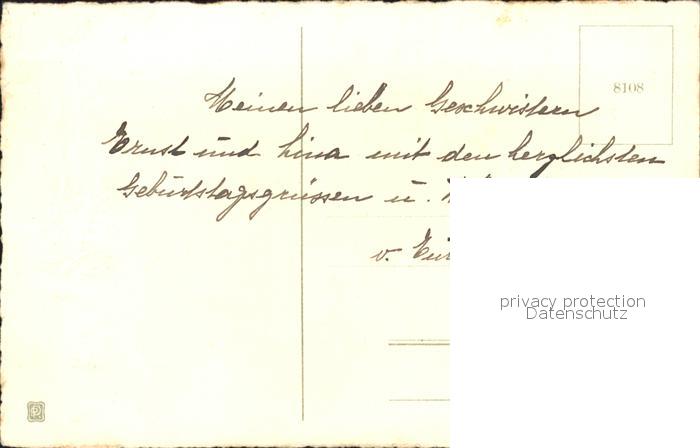 8108
Meinen lieben Geschwistern
Ernst und Lina mit den herzlichsten
Geburtstagsgrüssen u.
v.
privacy protection
Datenschutz